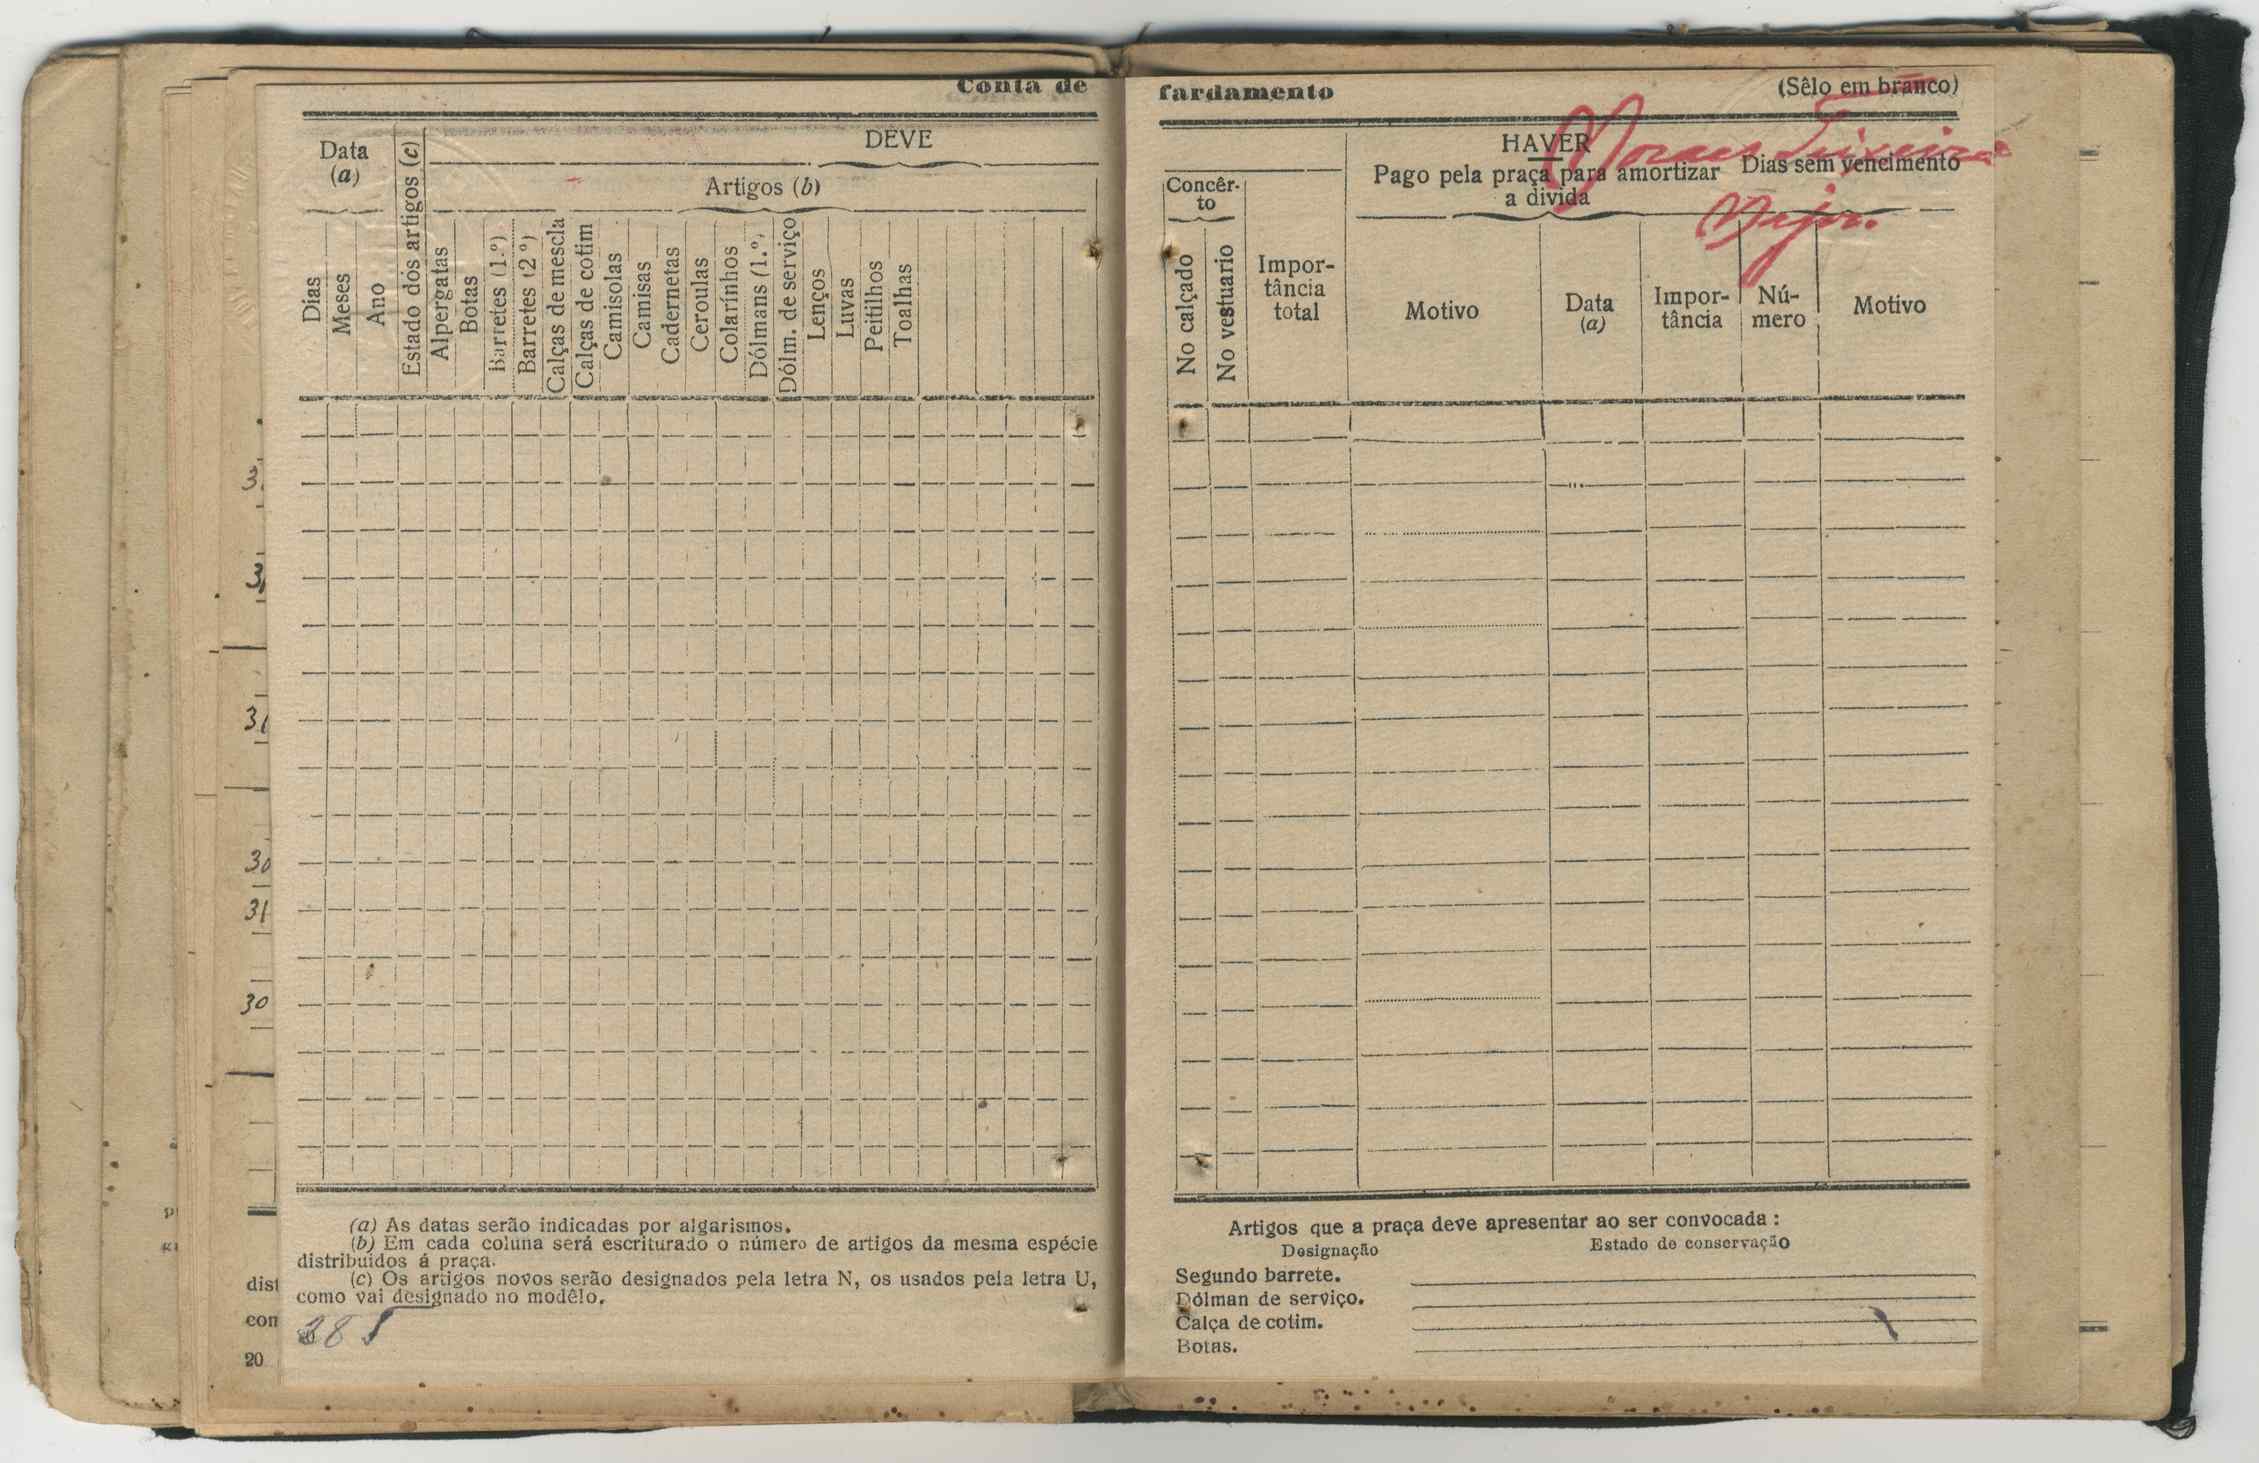 Conta de fardamento
(Sêlo em branco)
Data
(a)
Dias
Meses
Ano
Estado dos artigos (c)
DEVE
Artigos (b)
Alpergatas
Botas
Barretes (1.º)
Barretes (2.º)
Calças de mescla
Calças de cotim
Camisolas
Camisas
Cadernetas
Ceroulas
Colarínhos
Dólmans (1.º)
Dólm. de serviço
Lenços
Luvas
Peitilhos
Toalhas
3
3
31
30
31
30
(a) As datas serão indicadas por algarismos.
(b) Em cada coluna será escriturado o número de artigos da mesma espécie
distribuidos á praça.
(c) Os artigos novos serão designados pela letra N, os usados pela letra U,
como vai designado no modêlo.
dist
con
20
Concêr-
to
No calçado
No vestuario
Impor-
tância
total
HAVER
Pago pela praça para amortizar
a divida
Motivo
Data
(a)
Impor-
tância
Dias sem vencimento
Nú-
mero
Motivo
Moraes Teixeira
Major.
Artigos que a praça deve apresentar ao ser convocada :
Designação
Estado de conservação
Segundo barrete.
Dólman de serviço.
Calça de cotim.
Botas.